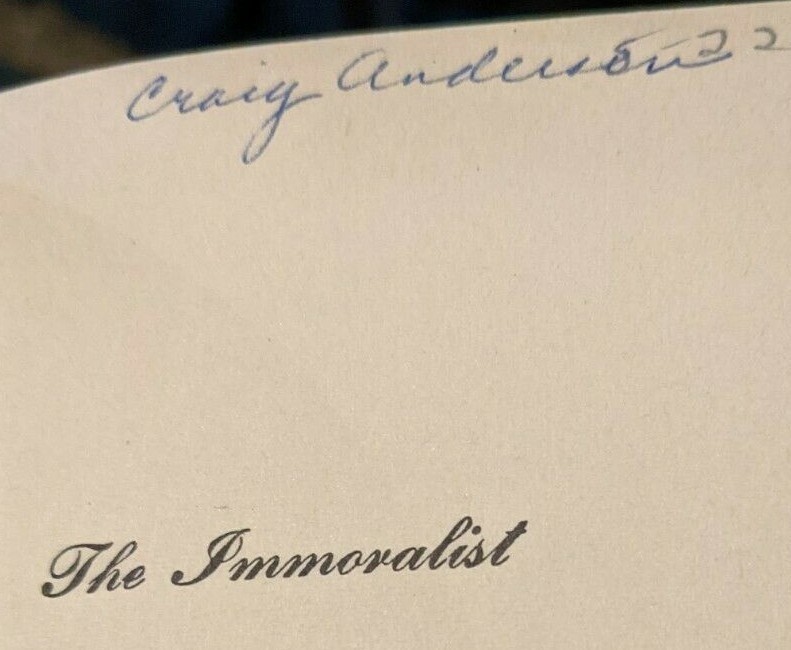 Craig Anderson 22
The Immoralist